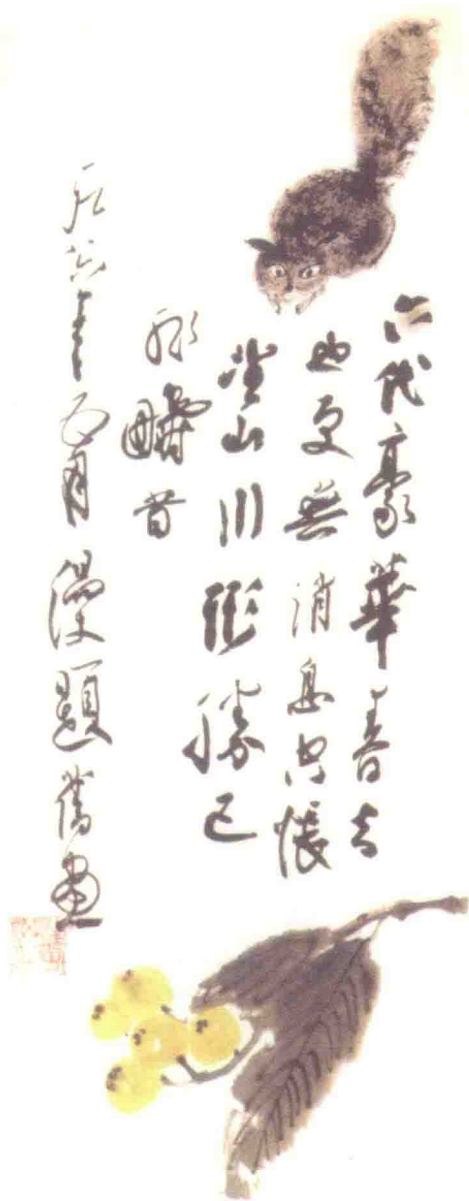 六代豪華春去
也更無消息空悵
望山川形勝已
非疇昔
年五月漫題舊畫